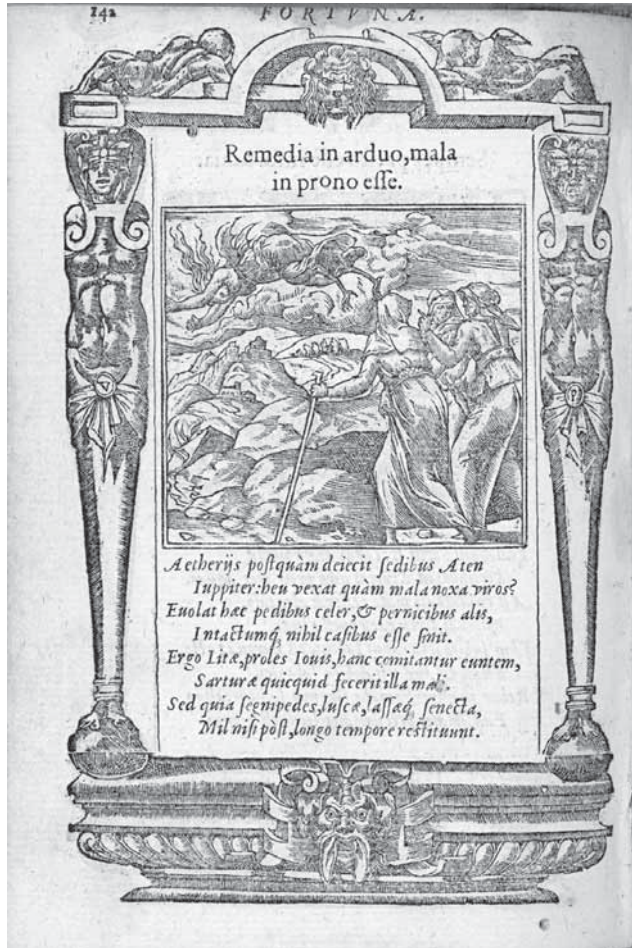 142
FORTVNA.
Remedia in arduo, mala
in prono eſſe.
Aetherijs poſtquàm deiecit ſedibus Aten
Iuppiter: heu vexat quàm mala noxa viros?
Euolat hæc pedibus celer, & pernicibus alis,
Intactumq́, nihil caſibus eſſe ſinit.
Ergo Litæ, proles Iouis, hanc comitantur euntem,
Sarturæ quicquid fecerit illa mali.
Sed quia ſegnipedes, luſcæ, laſſæq́, ſenecta,
Mil niſi pòſt, longo tempore reſtituunt.